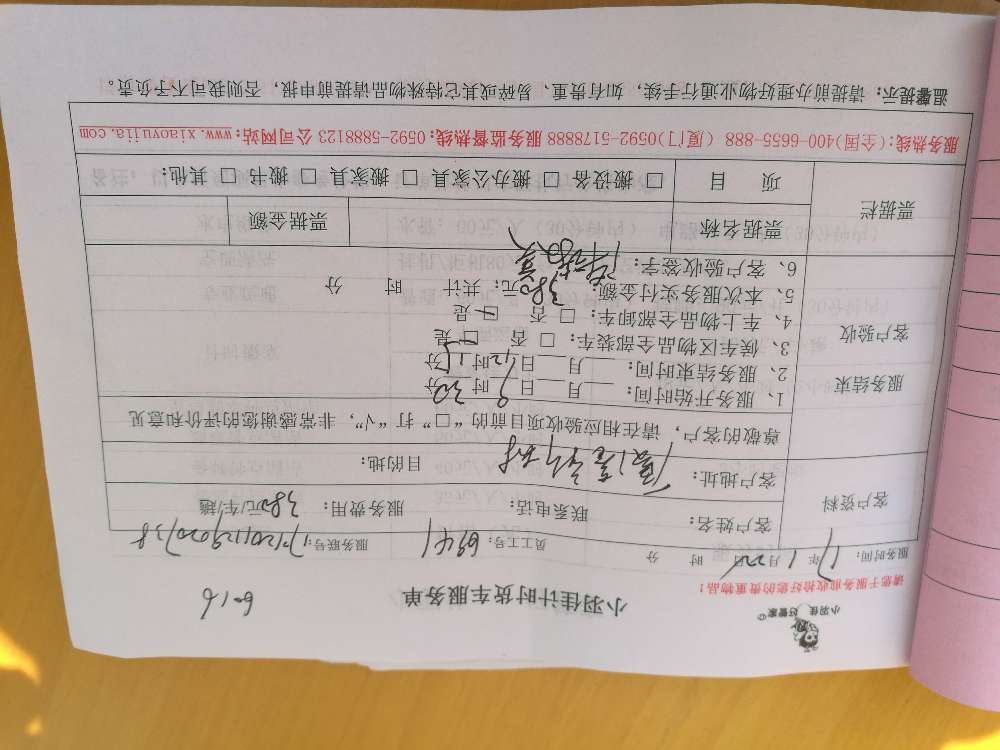 小羽佳 好管家
小羽佳计时货车服务单
6016
请您于服务前收拾好您的贵重物品！
服务时间： 17 年 1 月 22 日 时 分 员工号： 6941 服务联号：
客户资料
客户姓名： 联系电话： 服务费用： 380 元/车/趟
客户地址： 目的地：
尊敬的客户，请在相应验收项目前的“□”打“√”，非常感谢您的评价和意见
服务结束
客户验收
1、服务开始时间： 月 日 9 时 30 分
2、服务结束时间： 月 日 时 分
3、候车区物品全部装车： □ 否 □ 是
4、车上物品全部卸车： □ 否 □ 是
5、本次服务实付金额： 380 元；共计 时 分
6、客户验收签字：
票据栏
票据名称 票据金额
项 目 □ 搬设备 □ 搬办公家具 □ 搬家具 □ 搬书 □ 其他：
服务热线：(全国)400-6655-888 (厦门)0592-5178888 服务监督热线：0592-5888123 公司网站：www.xiaoyujia.com
温馨提示：请提前办理好物业通行手续，如有贵重，易碎或其它特殊物品请提前申报，否则我司不予负责。